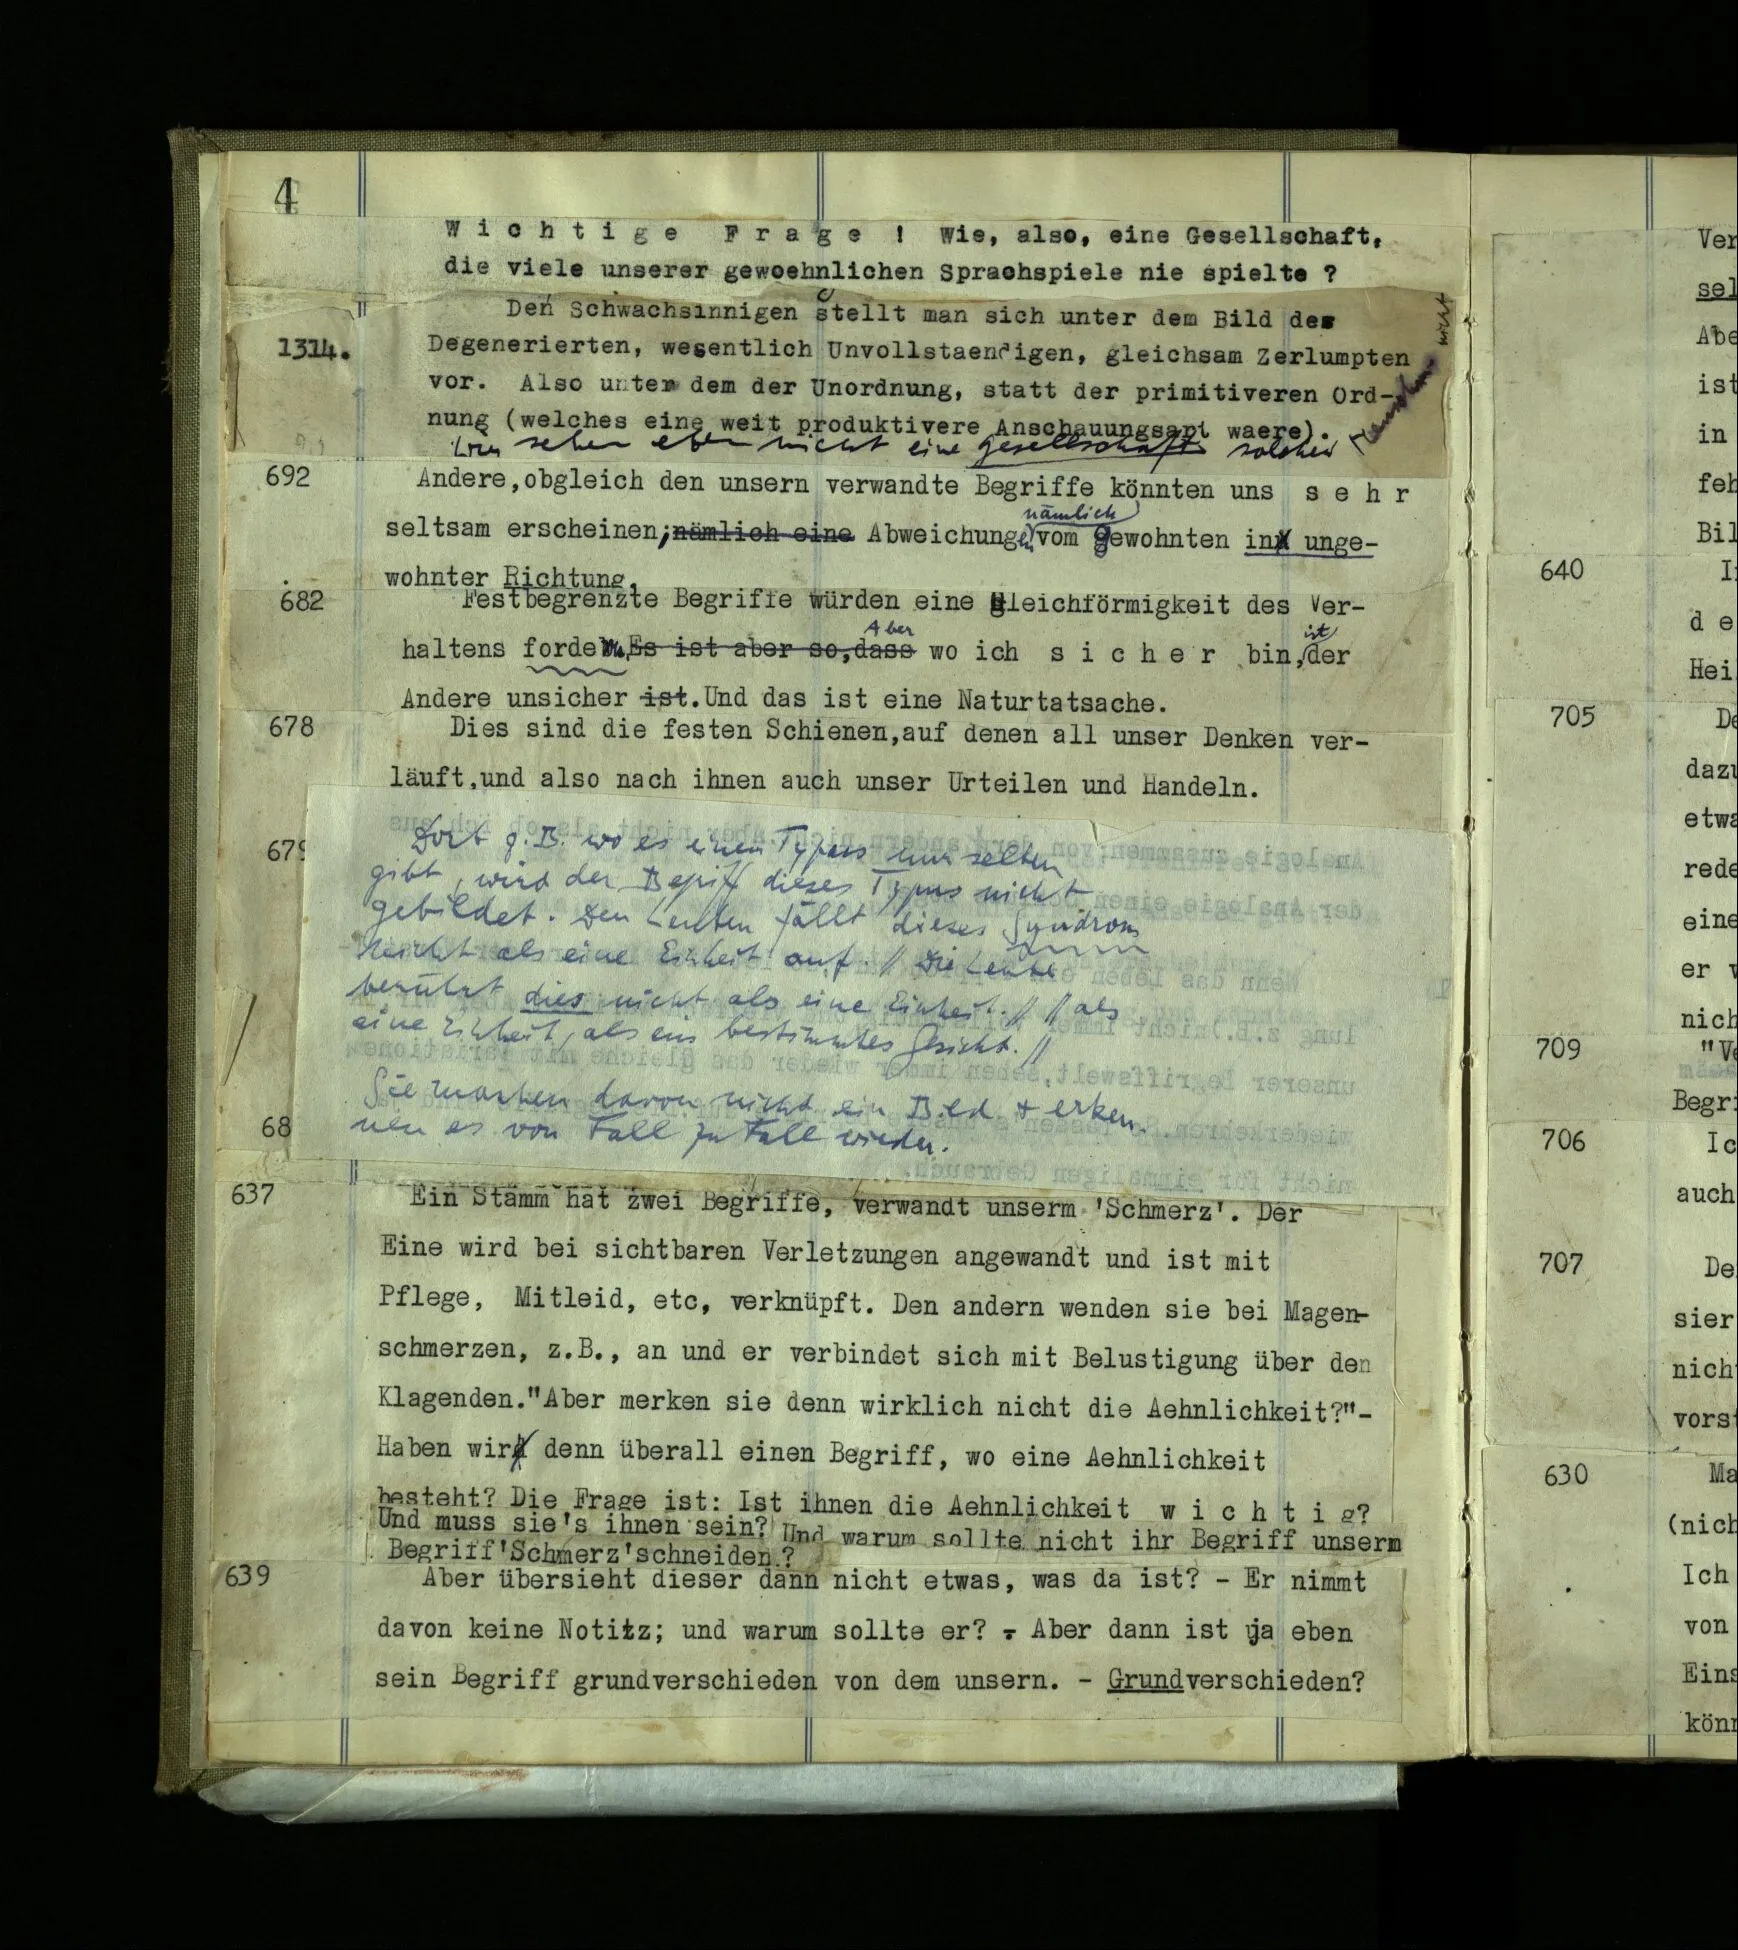 4
W i c h t i g e F r a g e ! Wie, also, eine Gesellschaft,
die viele unserer gewoehnlichen Sprachspiele nie spielte ?
Den Schwachsinnigen stellt man sich unter dem Bild des
1314. Degenerierten, wesentlich Unvollstaendigen, gleichsam Zerlumpten
vor. Also unter dem der Unordnung, statt der primitiveren Ord-
nung (welches eine weit produktivere Anschauungsart waere).
Wir sehen eben nicht eine Gesellschaft solcher Menschen
692 Andere,obgleich den unsern verwandte Begriffe könnten uns s e h r
nämlich
seltsam erscheinen;nämlich eine Abweichungen vom Gewohnten in unge-
wohnter Richtung.
682 Festbegrenzte Begriffe würden eine Gleichförmigkeit des Ver-
Aber ist
haltens fordern.Es ist aber so,dass wo ich s i c h e r bin,der
Andere unsicher ist.Und das ist eine Naturtatsache.
678 Dies sind die festen Schienen,auf denen all unser Denken ver-
läuft,und also nach ihnen auch unser Urteilen und Handeln.
679 Dort z.B. wo es einen Typus nur selten
gibt, wird der Begriff dieses Typus nicht
gebildet. Den Leuten fällt dieses Syndrom
nicht als eine Einheit auf. // Die Leute
berührt dies nicht als eine Einheit. // // als
eine Einheit, als ein bestimmtes Gesicht. //
Sie machen davon nicht ein Bild & erken-
68 nen es von Fall zu Fall wieder.
637 Ein Stamm hat zwei Begriffe, verwandt unserm 'Schmerz'. Der
Eine wird bei sichtbaren Verletzungen angewandt und ist mit
Pflege, Mitleid, etc, verknüpft. Den andern wenden sie bei Magen-
schmerzen, z.B., an und er verbindet sich mit Belustigung über den
Klagenden."Aber merken sie denn wirklich nicht die Aehnlichkeit?"-
Haben wir denn überall einen Begriff, wo eine Aehnlichkeit
besteht? Die Frage ist: Ist ihnen die Aehnlichkeit w i c h t i g?
Und muss sie's ihnen sein? Und warum sollte nicht ihr Begriff unserm
Begriff'Schmerz'schneiden.?
639 Aber übersieht dieser dann nicht etwas, was da ist? - Er nimmt
davon keine Notitz; und warum sollte er? - Aber dann ist ja eben
sein Begriff grundverschieden von dem unsern. - Grundverschieden?
Ver
sel
Abe
ist
in
feh
Bil
640
d e
Hei
705 De
dazu
etwa
rede
eine
er v
nich
709 "Ve
Begri
706 Ic
auch
707 De
sier
nich
vors
630 Ma
(nich
Ich
von
Eins
könn